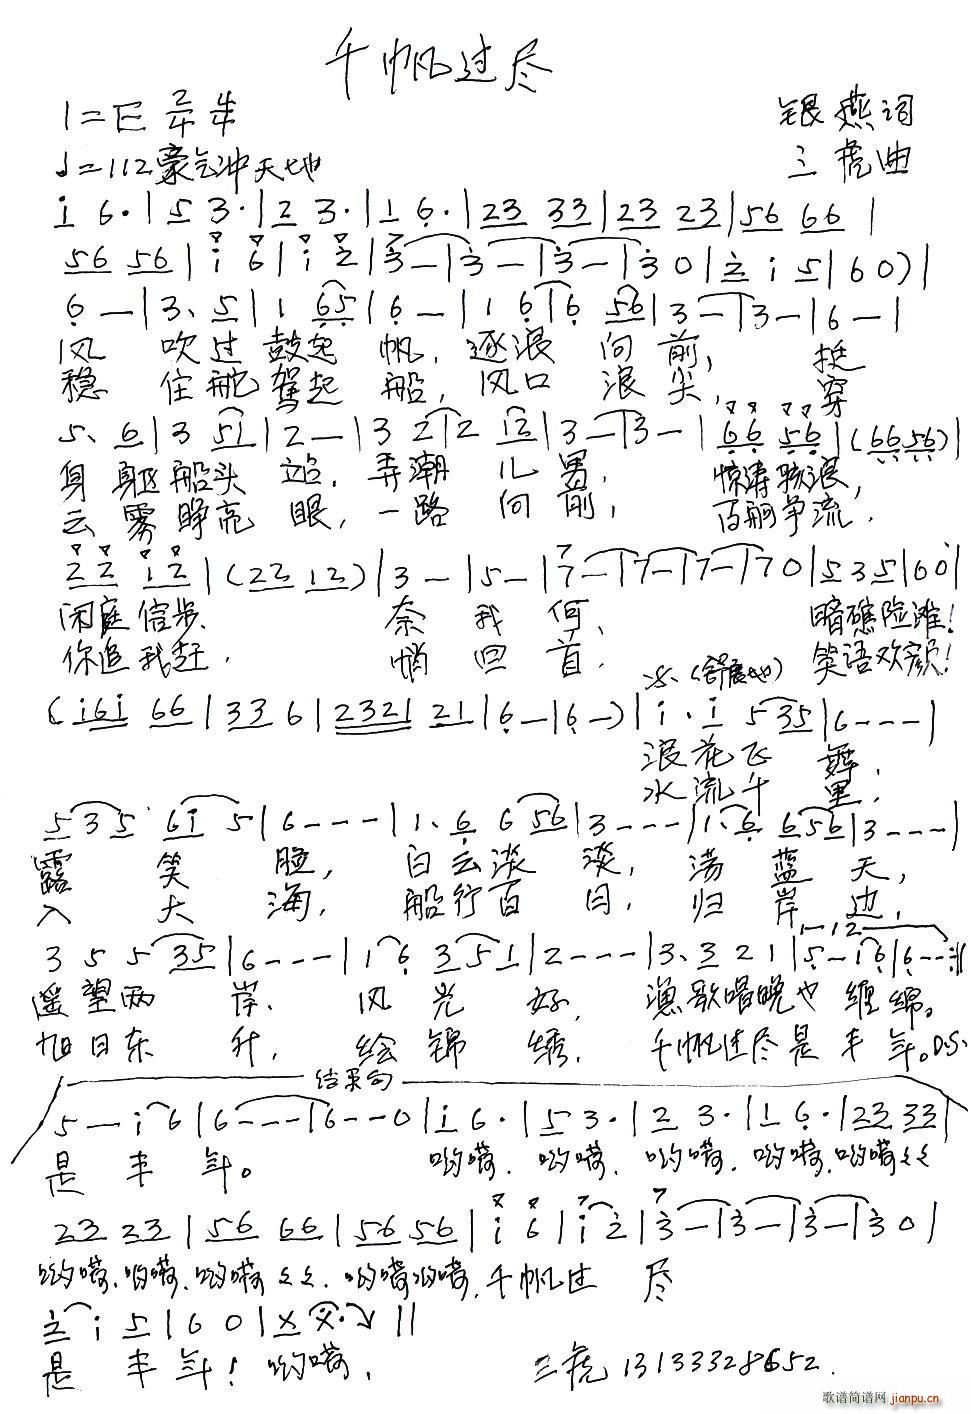 千帆过尽
1=E 2/4 4/4
银燕词
♩=112豪气冲天地
三虎曲
i 6·|5 3·|2 3·|1 6·|23 33|23 23|56 66|
56 56|i 6|i 2|3—|3—|3—|3 0|2 i 5|6 0)|
6—|3、5|1 65|6—|1 6|6 56|3—|3—|6—|
风 吹过鼓起 帆,逐浪 向前, 挺
稳 住舵驾起 船,风口 浪尖, 穿
5、6|3 51|2—|3 2|2 12|3—|3—|66 56|(66 56)|
身躯船头 站,弄潮儿男, 惊涛骇浪,
云雾睁亮 眼,一路向前, 百舸争流,
22 12|(22 12)|3—|5—|7—|7—|7—|7 0|5 3 5|6 0|
闲庭信步、 奈 我 何、 暗礁险滩!
你追我赶, 悄 回 首, 笑语欢颜!
(i6i 66|33 6|2321 21|6—|6—)|i·i 5 35|6---|
(舒展地)
浪花飞 舞,
水流千 里,
5 3 5 6i 5|6---|1、6 6 56|3---|1、6 6 56|3---|
露 笑 脸, 白云淡 淡, 荡 蓝 天,
入 大 海, 船行百 日, 归 岸 边,
3 5 5 35|6---|1 6 3 5 1|2---|3、3 2 1|5—1 6|6---:||
12
遥望两 岸、 风 光 好, 渔歌唱晚也 缠 绵。
旭日东 升, 绘 锦 绣, 千帆过尽是 丰 年。D.S.
结束句
5—i 6|6---|6--0|i 6·|5 3·|2 3·|1 6·|23 33|
是 丰 年。 哟嗬、哟嗬、哟嗬、哟嗬、哟嗬
23 23|56 66|56 56|i 6|i 2|3—|3—|3—|3 0|
哟嗬、哟嗬、哟嗬 哟嗬哟嗬,千帆过 尽
2 i 5|6 0|X X·||
是 丰 年!哟嗬,
三虎 13133328652.
歌谱简谱网
jianpu.cn